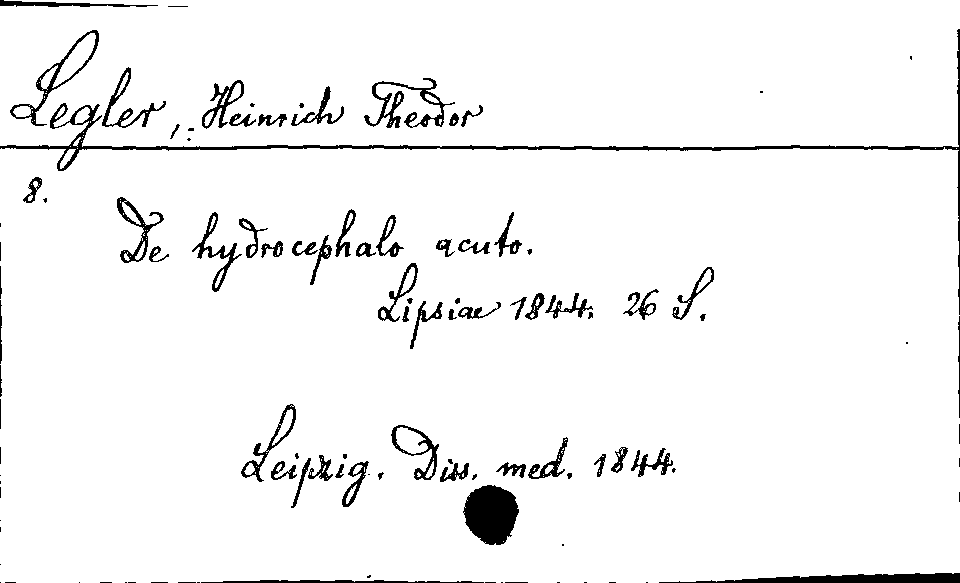 Legler, Heinrich Theodor
8.
De hydrocephalo acuto.
Lipsiae 1844. 26 S.
Leipzig. Diss. med. 1844.